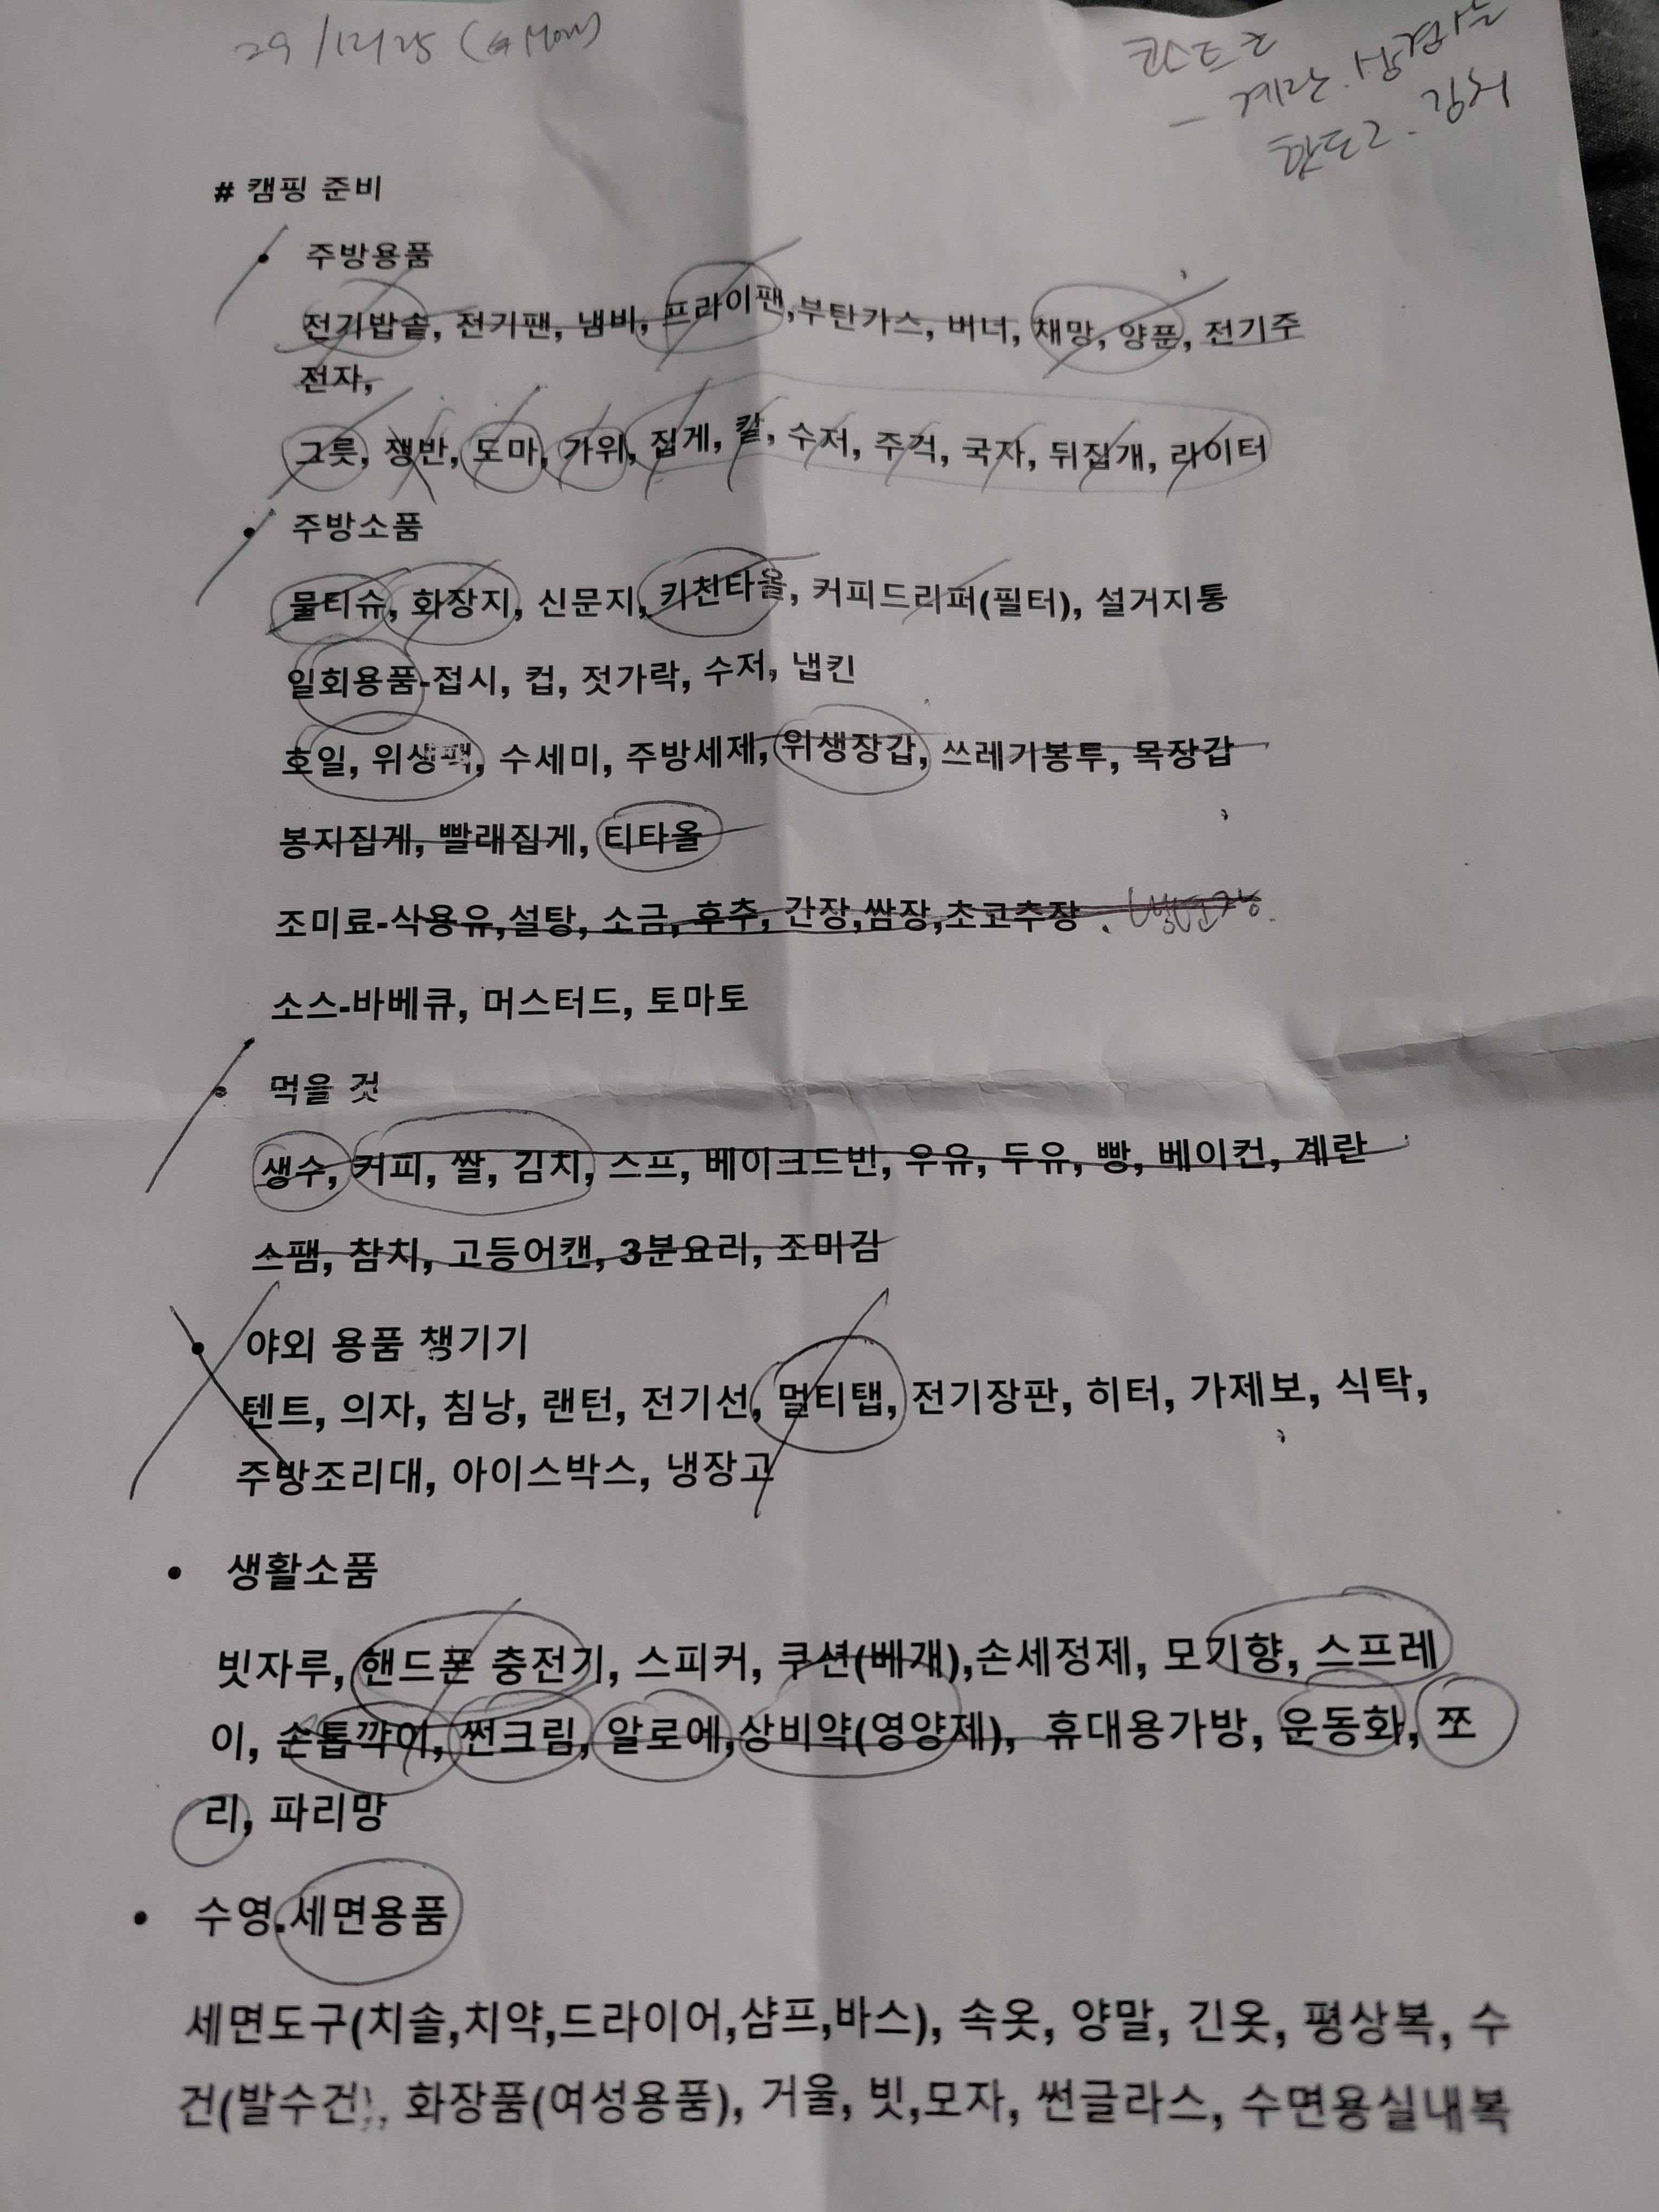 29/12/25 (Mon)
코스트코
- 계란.
김치
# 캠핑 준비
• 주방용품
전기밥솥, 전기팬, 냄비, 프라이팬,부탄가스, 버너, 채망, 양푼, 전기주
전자,
그릇, 쟁반, 도마, 가위, 집게, 칼, 수저, 주걱, 국자, 뒤집개, 라이터
• 주방소품
물티슈, 화장지, 신문지, 키친타올, 커피드리퍼(필터), 설거지통
일회용품-접시, 컵, 젓가락, 수저, 냅킨
호일, 위생팩, 수세미, 주방세제, 위생장갑, 쓰레기봉투, 목장갑
봉지집게, 빨래집게, 티타올
조미료-식용유,설탕, 소금, 후추, 간장,쌈장,초고추장
소스-바베큐, 머스터드, 토마토
• 먹을 것
생수, 커피, 쌀, 김치, 스프, 베이크드빈, 우유, 두유, 빵, 베이컨, 계란
스팸, 참치, 고등어캔, 3분요리, 조미김
• 야외 용품 챙기기
텐트, 의자, 침낭, 랜턴, 전기선, 멀티탭, 전기장판, 히터, 가제보, 식탁,
주방조리대, 아이스박스, 냉장고
• 생활소품
빗자루, 핸드폰 충전기, 스피커, 쿠션(베개),손세정제, 모기향, 스프레
이, 손톱깍이, 썬크림, 알로에,상비약(영양제), 휴대용가방, 운동화, 쪼
리, 파리망
• 수영.세면용품
세면도구(치솔,치약,드라이어,샴프,바스), 속옷, 양말, 긴옷, 평상복, 수
건(발수건), 화장품(여성용품), 거울, 빗,모자, 썬글라스, 수면용실내복